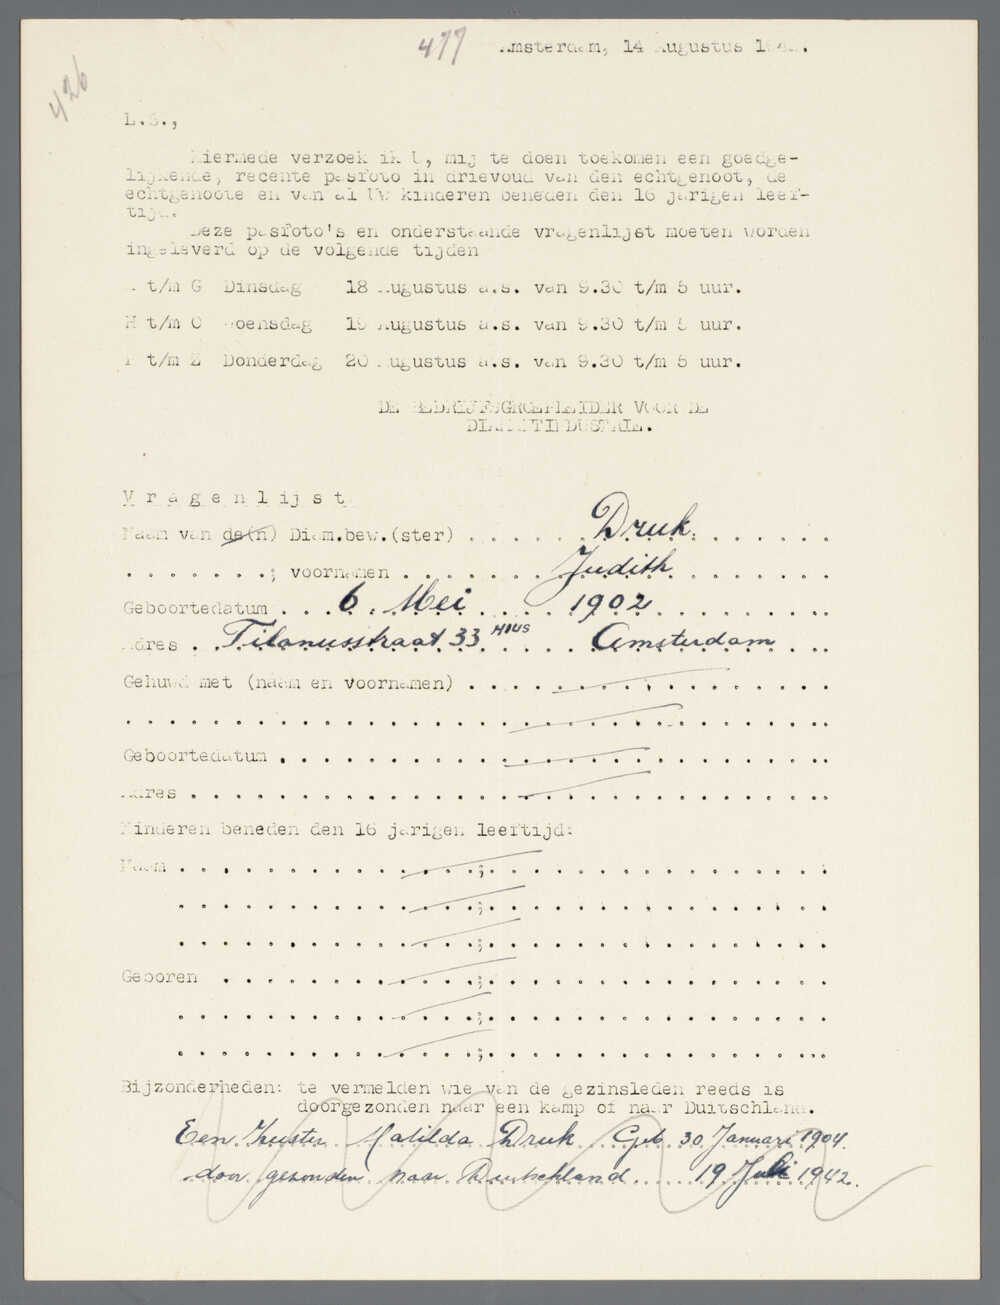 477
Amsterdam, 14 Augustus 1942.
426
L.S.,
Hiermede verzoek ik U, mij te doen toekomen een goedge-
lijkende, recente pasfoto in drievoud van den echtgenoot, de
echtgenoote en van al Uw kinderen beneden den 16 jarigen leef-
tijd.
Deze pasfoto's en onderstaande vragenlijst moeten worden
ingeleverd op de volgende tijden
A t/m G Dinsdag 18 Augustus a.s. van 9.30 t/m 5 uur.
H t/m O Woensdag 19 Augustus a.s. van 9.30 t/m 5 uur.
P t/m Z Donderdag 20 Augustus a.s. van 9.30 t/m 5 uur.
DE BEDRIJFSGROEPLEIDER VOOR DE
DIAMANTINDUSTRIE.
Vragenlijst
Naam van de(n) Diam.bew.(ster) . . . . . . Druk . . . . . . .
. . . . . . . ; voornamen . . . . . . . Judith . . . . . . . .
Geboortedatum . . . 6 Mei . . . . 1902 . . . . . . . .
Adres . . Titanusstraat 33 HUIS . . . . Amsterdam . . .
Gehuwd met (naam en voornamen) . . . . . . . . . . . . . . . .
. . . . . . . . . . . . . . . . . . . . . . . . . . . . . . . .
Geboortedatum . . . . . . . . . . . . . . . . . . . . . . . . .
Adres . . . . . . . . . . . . . . . . . . . . . . . . . . . . .
Kinderen beneden den 16 jarigen leeftijd:
Naam . . . . . . . . . . . . . ; . . . . . . . . . . . . . . .
. . . . . . . . . . . . . ; . . . . . . . . . . . . . . .
. . . . . . . . . . . . . ; . . . . . . . . . . . . . . .
Geboren . . . . . . . . . . . ; . . . . . . . . . . . . . . .
. . . . . . . . . . . . . ; . . . . . . . . . . . . . . .
. . . . . . . . . . . . . ; . . . . . . . . . . . . . . .
Bijzonderheden: te vermelden wie van de gezinsleden reeds is
doorgezonden naar een kamp of naar Duitschland.
Een Zuster Matilda Druk Geb 30 Januari 1904.
door gezonden naar Deutschland . . . . . 19 Juli 1942.